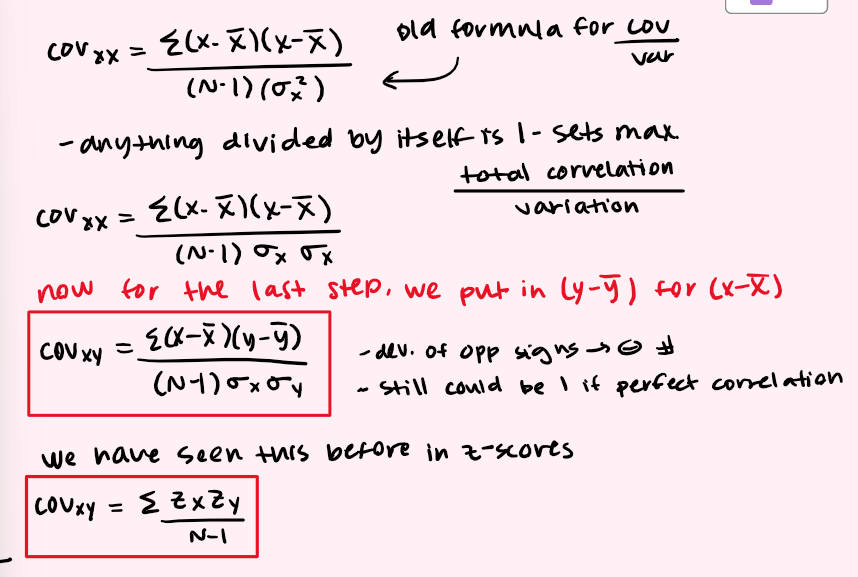 cov xx = Σ(x-x̄)(x-x̄) / (N-1)(σx²)
old formula for cov / var
- anything divided by itself is 1 - sets max
total correlation / variation
cov xx = Σ(x-x̄)(x-x̄) / (N-1) σx σx
now for the last step, we put in (y-ȳ) for (x-x̄)
cov xy = Σ(x-x̄)(y-ȳ) / (N-1) σx σy
- dev. of opp signs → ⊖ #
- still could be 1 if perfect correlation
we have seen this before in z-scores
cov xy = Σ zx zy / N-1